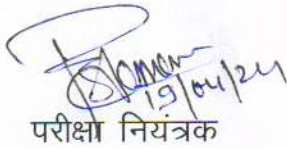 19/04/24
परीक्षा नियंत्रक